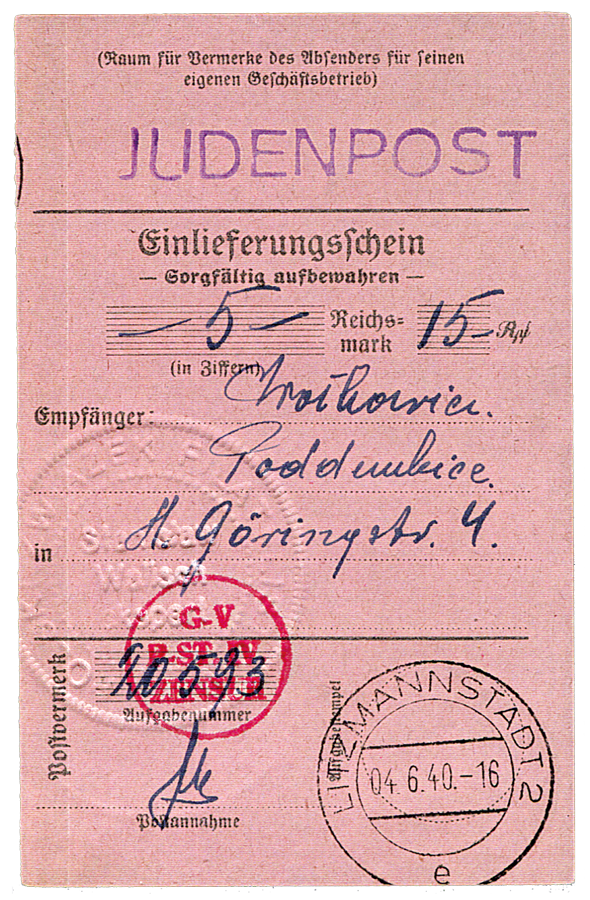 (Raum für Vermerke des Absenders für seinen
eigenen Geschäftsbetrieb)
JUDENPOST
Einlieferungsschein
— Sorgfältig aufbewahren —
— 5 — Reichs=
mark 15 — Rpf
(in Ziffern)
Empfänger:
Poddembice.
in H. Göringstr. 4.
G.-V
P-ST. IV
ZENSUR
Postvermerk
Aufgabenummer
Aufgabestempel
Postannahme
LITZMANNSTADT 2
04.6.40.-16
e